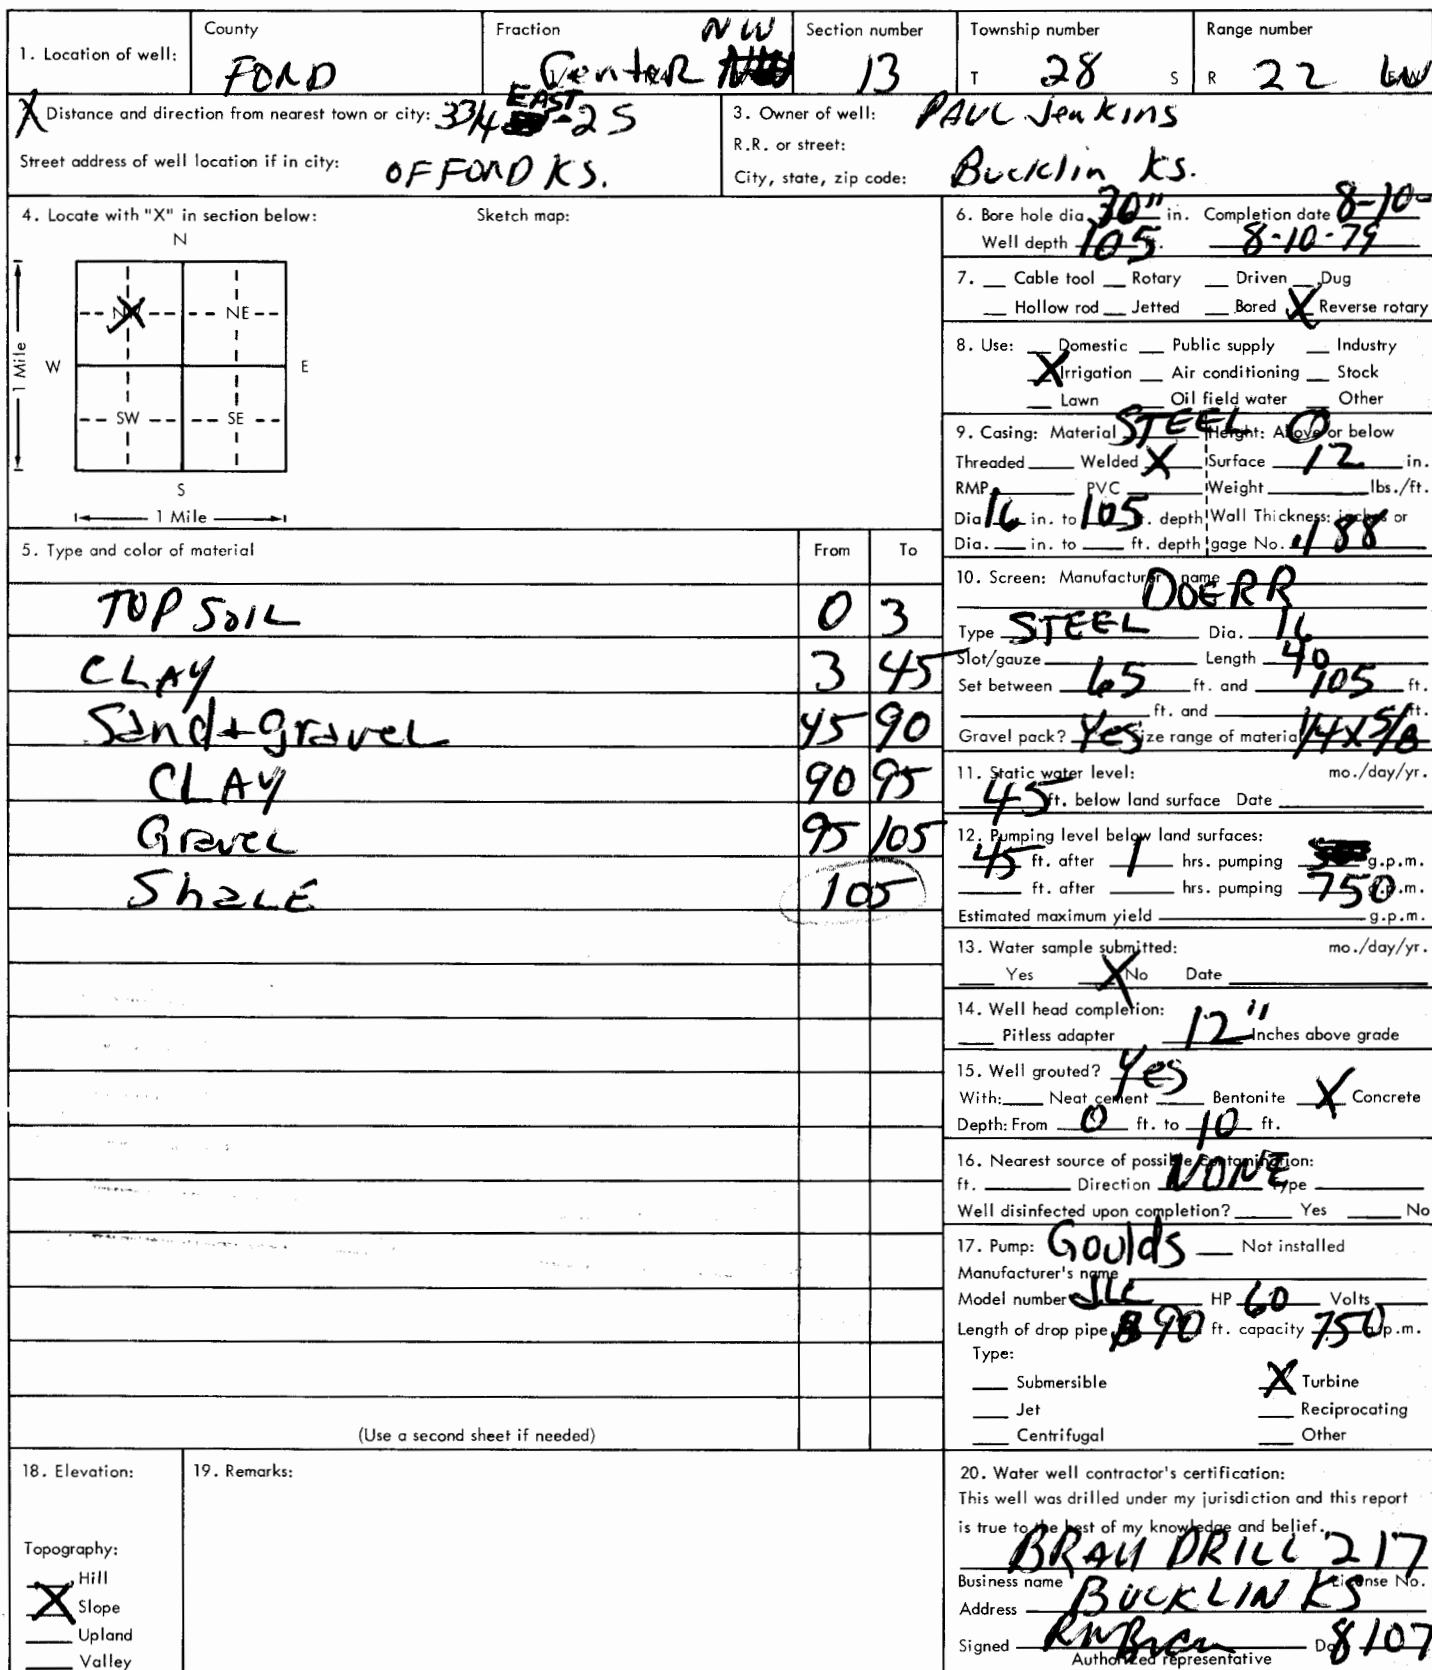 1. Location of well: County FORD Fraction Center NW Section number 13 Township number T 28 S Range number R 22 W
Distance and direction from nearest town or city: 3 3/4 EAST - 2 S
Street address of well location if in city: OF FORD KS.
3. Owner of well: PAUL Jenkins
R.R. or street:
City, state, zip code: Bucklin Ks.
4. Locate with "X" in section below: Sketch map:
N
NW NE
1 Mile W E
SW SE
S
1 Mile
5. Type and color of material From To
TOP SOIL 0 3
CLAY 3 45
Sand + gravel 45 90
CLAY 90 95
Gravel 95 105
Shale 105
(Use a second sheet if needed)
6. Bore hole dia 30" in. Completion date 8-10-
Well depth 105 ft. 8-10-79
7. Cable tool Rotary Driven Dug
Hollow rod Jetted Bored X Reverse rotary
8. Use: Domestic Public supply Industry
X Irrigation Air conditioning Stock
Lawn Oil field water Other
9. Casing: Material STEEL Height: Above or below
Threaded Welded X Surface 12 in.
RMP PVC Weight lbs./ft.
Dia 16 in. to 105 ft. depth Wall Thickness: inches or
Dia. in. to ft. depth gage No. .188
10. Screen: Manufacturer's name
DOERR
Type STEEL Dia. 16
Slot/gauze Length 40
Set between 65 ft. and 105 ft.
ft. and ft.
Gravel pack? Yes Size range of material 1/4 x 5/8
11. Static water level: mo./day/yr.
45 ft. below land surface Date
12. Pumping level below land surfaces:
45 ft. after 1 hrs. pumping g.p.m.
ft. after hrs. pumping 750 g.p.m.
Estimated maximum yield g.p.m.
13. Water sample submitted: mo./day/yr.
Yes X No Date
14. Well head completion:
Pitless adapter 12" Inches above grade
15. Well grouted? Yes
With: Neat cement Bentonite X Concrete
Depth: From 0 ft. to 10 ft.
16. Nearest source of possible contamination:
ft. Direction NONE Type
Well disinfected upon completion? Yes No
17. Pump: Goulds Not installed
Manufacturer's name
Model number HP 60 Volts
Length of drop pipe 90 ft. capacity 750 g.p.m.
Type:
Submersible X Turbine
Jet Reciprocating
Centrifugal Other
18. Elevation:
Topography:
Hill
X Slope
Upland
Valley
19. Remarks:
20. Water well contractor's certification:
This well was drilled under my jurisdiction and this report
is true to the best of my knowledge and belief.
BRAU DRILL 217
Business name License No.
Address BUCKLIN KS
Signed Date 8 107
Authorized representative